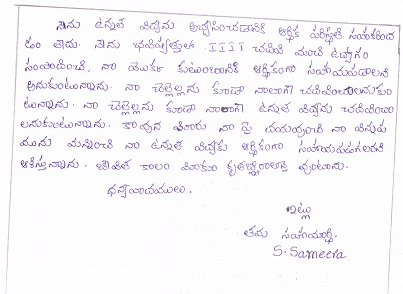 నేను ఉన్నత విద్యను అభ్యసించడానికి ఆర్థిక పరిస్థితి సహకరించ
డం లేదు. నేను భవిష్యత్తులో IIIT చదివి మంచి ఉద్యోగం
సంపాదించి, నా యొక్క కుటుంబానికి ఆర్థికంగా సహాయపడాలని
అనుకుంటున్నాను. నా చెల్లెల్లను కూడా నాలాగే చదివించాలనుకుం
టున్నాను. నా చెల్లెల్లను కూడా నాలాగే ఉన్నత విద్యను చదివించా
లనుకుంటున్నాను. కావున మీరు నా పై దయవుంచి నా విన్నప
మును మన్నించి నా ఉన్నత విద్యకు ఆర్థికంగా సహాయపడగలరని
ఆశిస్తున్నాను. జీవిత కాలం మీకు కృతజ్ఞురాలినై వుంటాను.
ధన్యవాదములు.
ఇట్లు
తమ సహాయార్థి.
S. Sameera